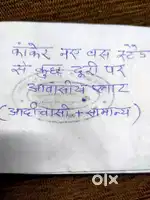 कांकेर नए बस स्टैंड
से कुछ दूरी पर
आवासीय प्लाट
(आदीवासी + सामान्य)
olx